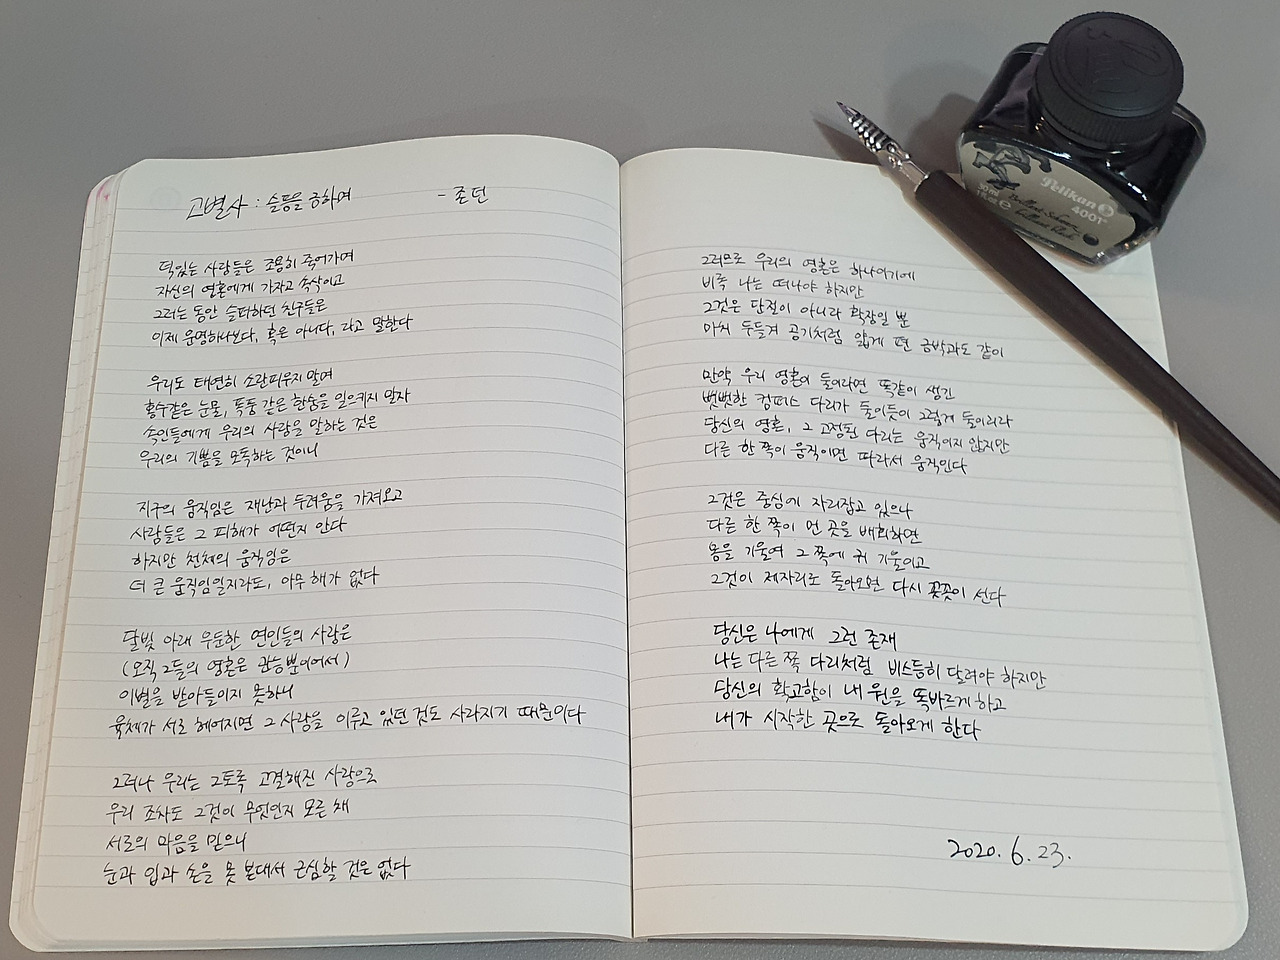 고별사 : 슬픔을 금하며 - 존 던
덕있는 사람들은 조용히 죽어가며
자신의 영혼에게 가자고 속삭이고
그러는 동안 슬퍼하던 친구들은
이제 운명하나보다, 혹은 아니다, 라고 말한다
우리도 태연히 소란피우지 말며
홍수같은 눈물, 폭풍 같은 한숨을 일으키지 말자
속인들에게 우리의 사랑을 말하는 것은
우리의 기쁨을 모독하는 것이니
지구의 움직임은 재난과 두려움을 가져오고
사람들은 그 피해가 어떤지 안다
하지만 천체의 움직임은
더 큰 움직임일지라도, 아무 해가 없다
달빛 아래 우둔한 연인들의 사랑은
(오직 그들의 영혼은 관능뿐이어서)
이별을 받아들이지 못하니
육체가 서로 헤어지면 그 사랑을 이루고 있던 것도 사라지기 때문이다
그러나 우리는 그토록 고결해진 사랑으로
우리 조차도 그것이 무엇인지 모른 채
서로의 마음을 믿으니
눈과 입과 손을 못 본대서 근심할 것은 없다
그러므로 우리의 영혼은 하나이기에
비록 나는 떠나야 하지만
그것은 단절이 아니라 확장일 뿐
마치 두들겨 공기처럼 얇게 편 금박과도 같이
만약 우리 영혼이 둘이라면 똑같이 생긴
뻣뻣한 컴퍼스 다리가 둘이듯이 그렇게 둘이리라
당신의 영혼, 그 고정된 다리는 움직이지 않지만
다른 한 쪽이 움직이면 따라서 움직인다
그것은 중심에 자리잡고 있으나
다른 한 쪽이 먼 곳을 배회하면
몸을 기울여 그 쪽에 귀 기울이고
그것이 제자리로 돌아오면 다시 꼿꼿이 선다
당신은 나에게 그런 존재
나는 다른 쪽 다리처럼 비스듬히 달려야 하지만
당신의 확고함이 내 원을 똑바르게 하고
내가 시작한 곳으로 돌아오게 한다
2020. 6. 23.
Pelikan
400T
30 ml
Brillant-Schwarz
brilliant black